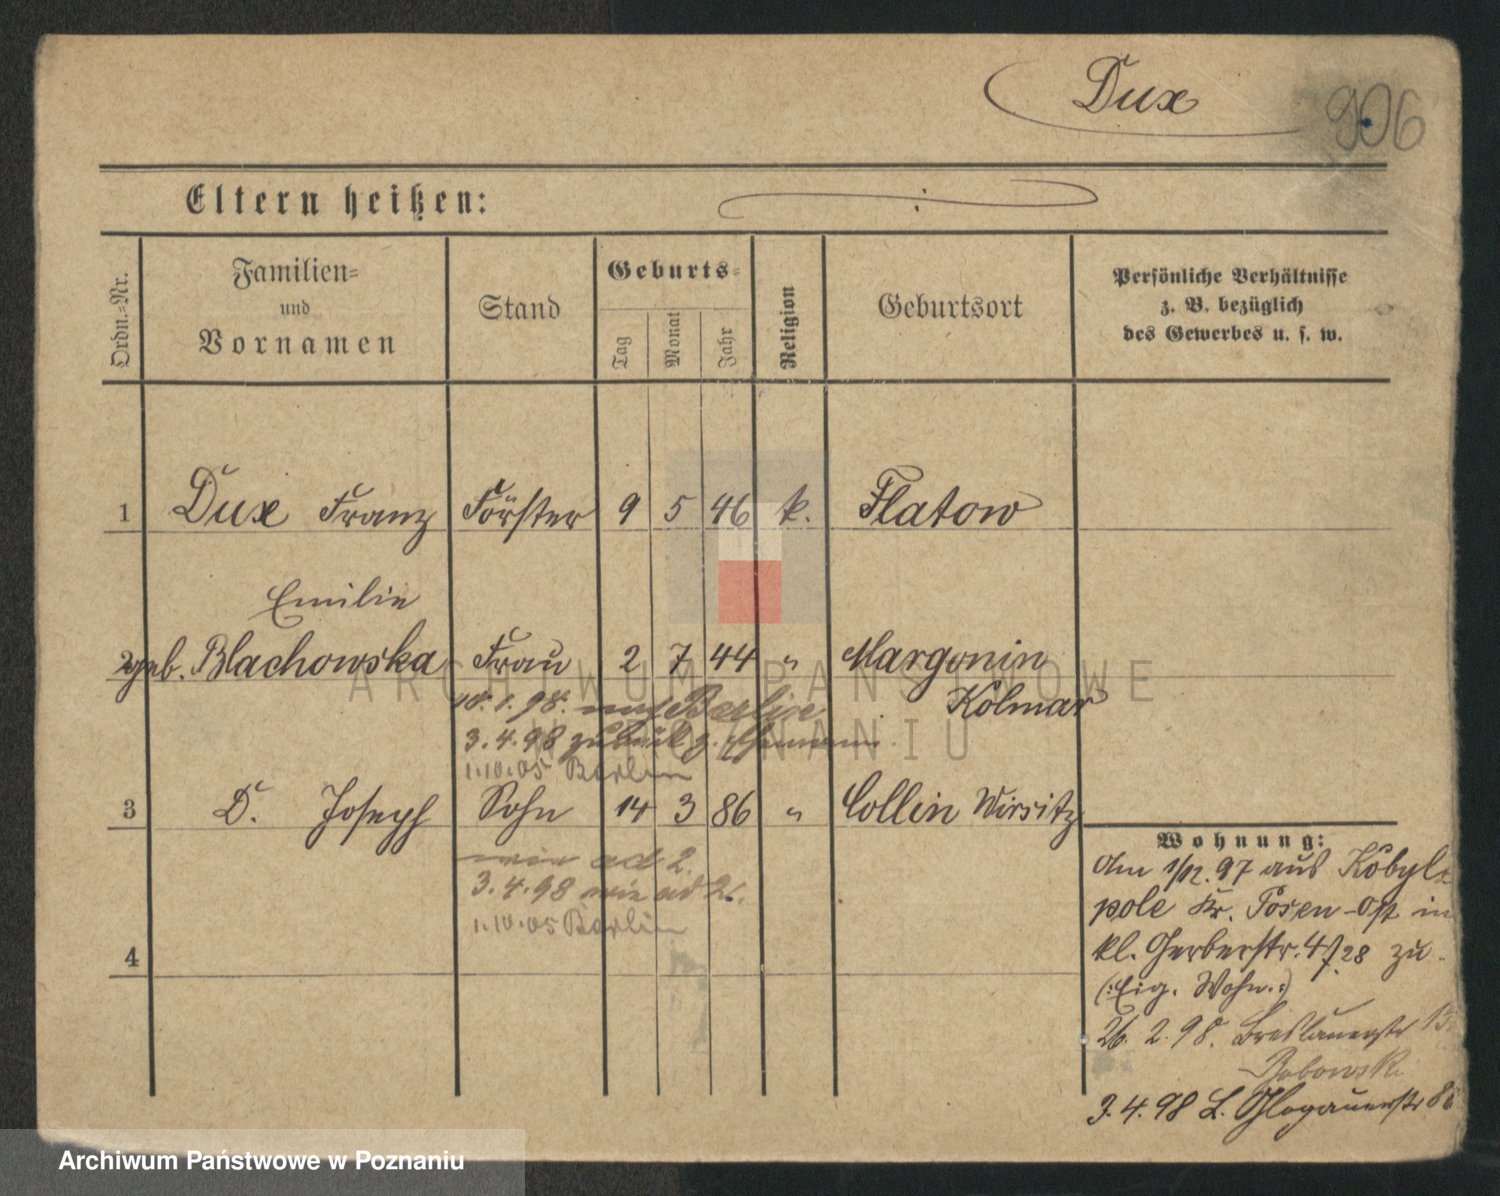 Dux
906
Eltern heißen:
Ordn.-Nr.
Familien-
und
Vornamen
Stand
Geburts-
Tag
Monat
Jahr
Religion
Geburtsort
Persönliche Verhältnisse
z. B. bezüglich
des Gewerbes u. s. w.
1 Dux Franz Förster 9 5 46 k. Flatow
Emilie
2 geb. Blachowska Frau 2 7 44 " Margonin
Kolmar
18.1.98. nach Berlin
3.4.98 zurück z. Ehemann
1.10.05 Berlin
3 D. Joseph Sohn 14 3 86 " Collin Wirsitz
wie ad 2.
3.4.98 wie ad 2.
1.10.05 Berlin
4
Wohnung:
Am 1/12.97 aus Kobyle
pole Kr. Posen-Ost in
kl. Gerberstr. 4/7.28 zu.
(:Eig. Wohn.:)
26.2.98. Breslauerstr 15.
Bobowski
3.4.98 L. Glogauerstr
ARCHIWUM PAŃSTWOWE
W POZNANIU
Archiwum Państwowe w Poznaniu